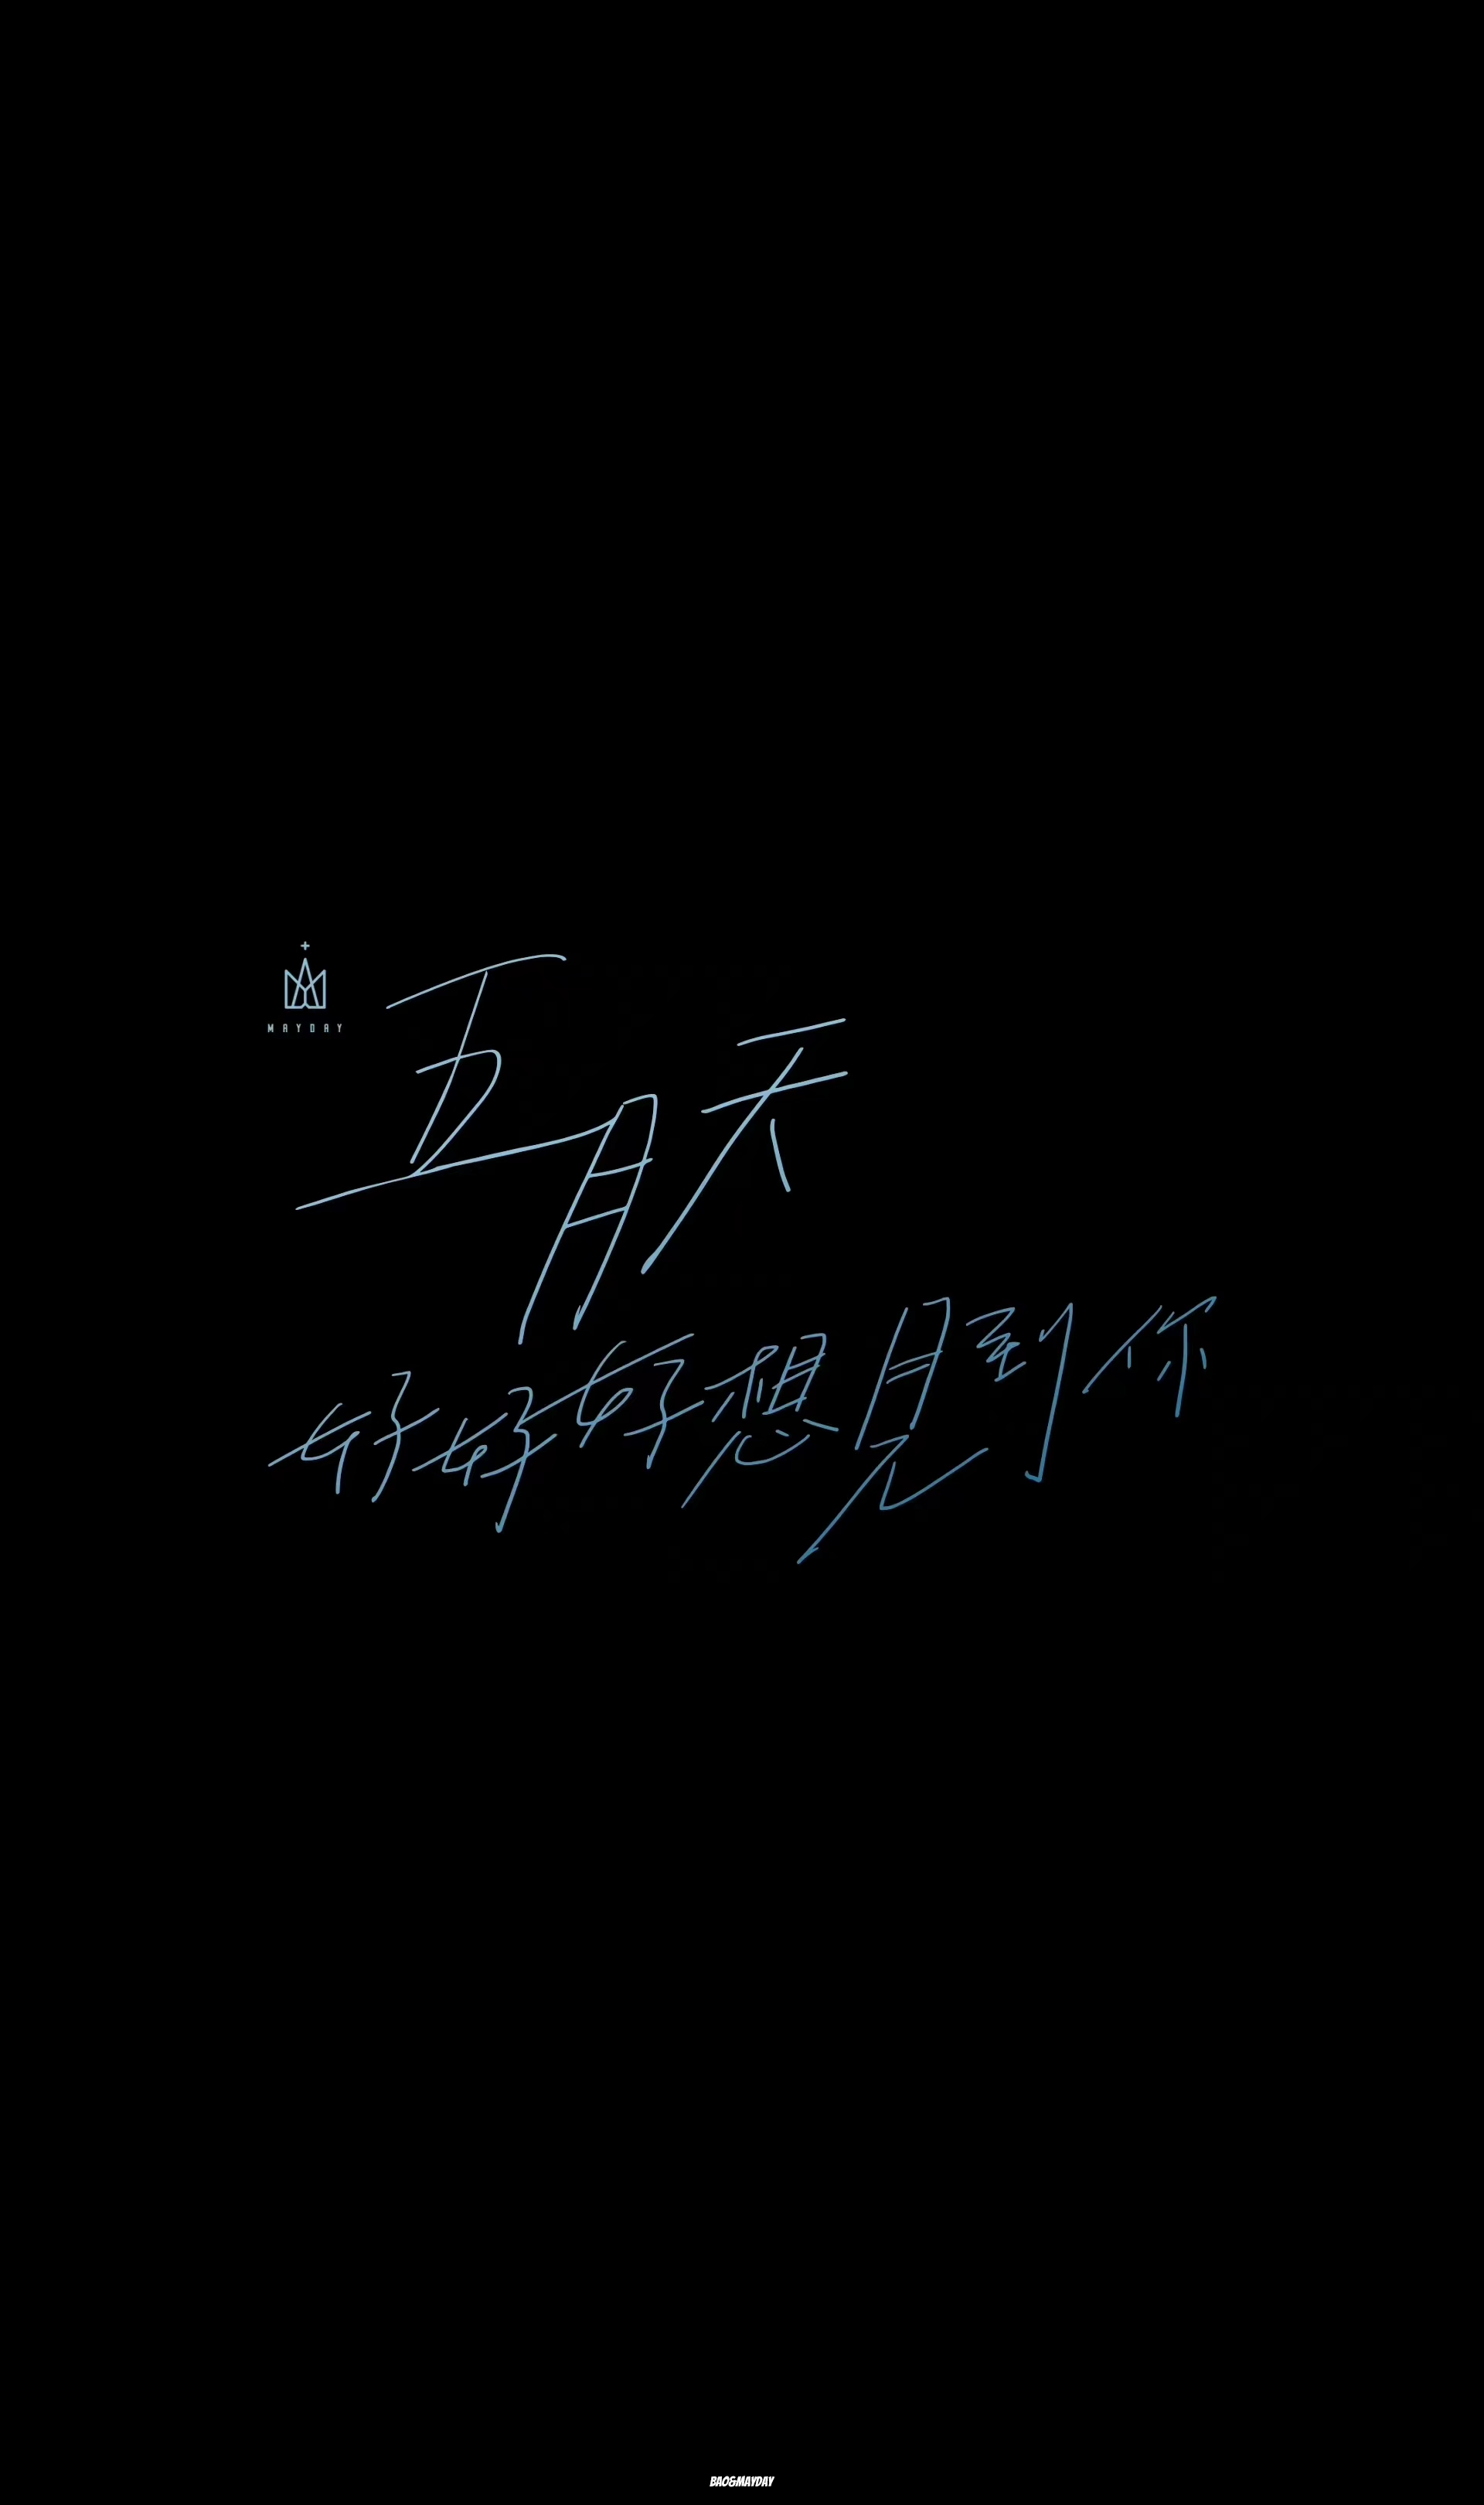 MAYDAY
五月天
好好好想見到你
BAO&MAYDAY